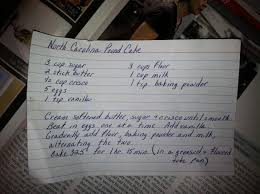 North Carolina Pound Cake
3 cup sugar 3 cups flour
2 stick butter 1 cup milk
1/2 cup crisco 1 tsp. baking powder
5 eggs
1 tsp vanilla
Cream softened butter, sugar + crisco until smooth
Beat in eggs one at a time. Add vanilla
Gradually add flour, baking powder and milk,
alternating the two.
Bake 325° for 1 hr 15 min (in a greased + floured
tube pan)